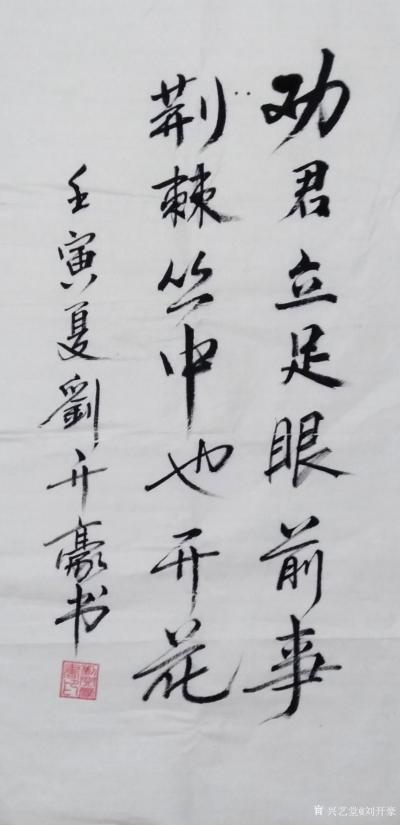 劝君立足眼前事
荆棘丛中也开花
壬寅夏劉开豪书
兴艺堂@刘开豪